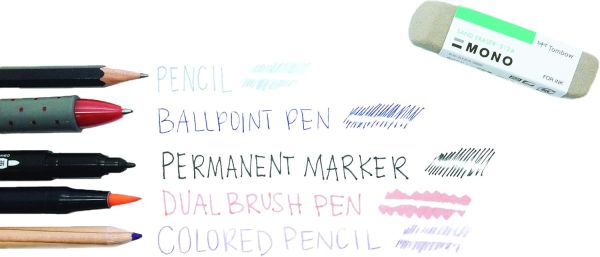 SAND ERASER 512A
MONO
Tombow
FOR INK
PENCIL
BALLPOINT PEN
PERMANENT MARKER
DUAL BRUSH PEN
COLORED PENCIL